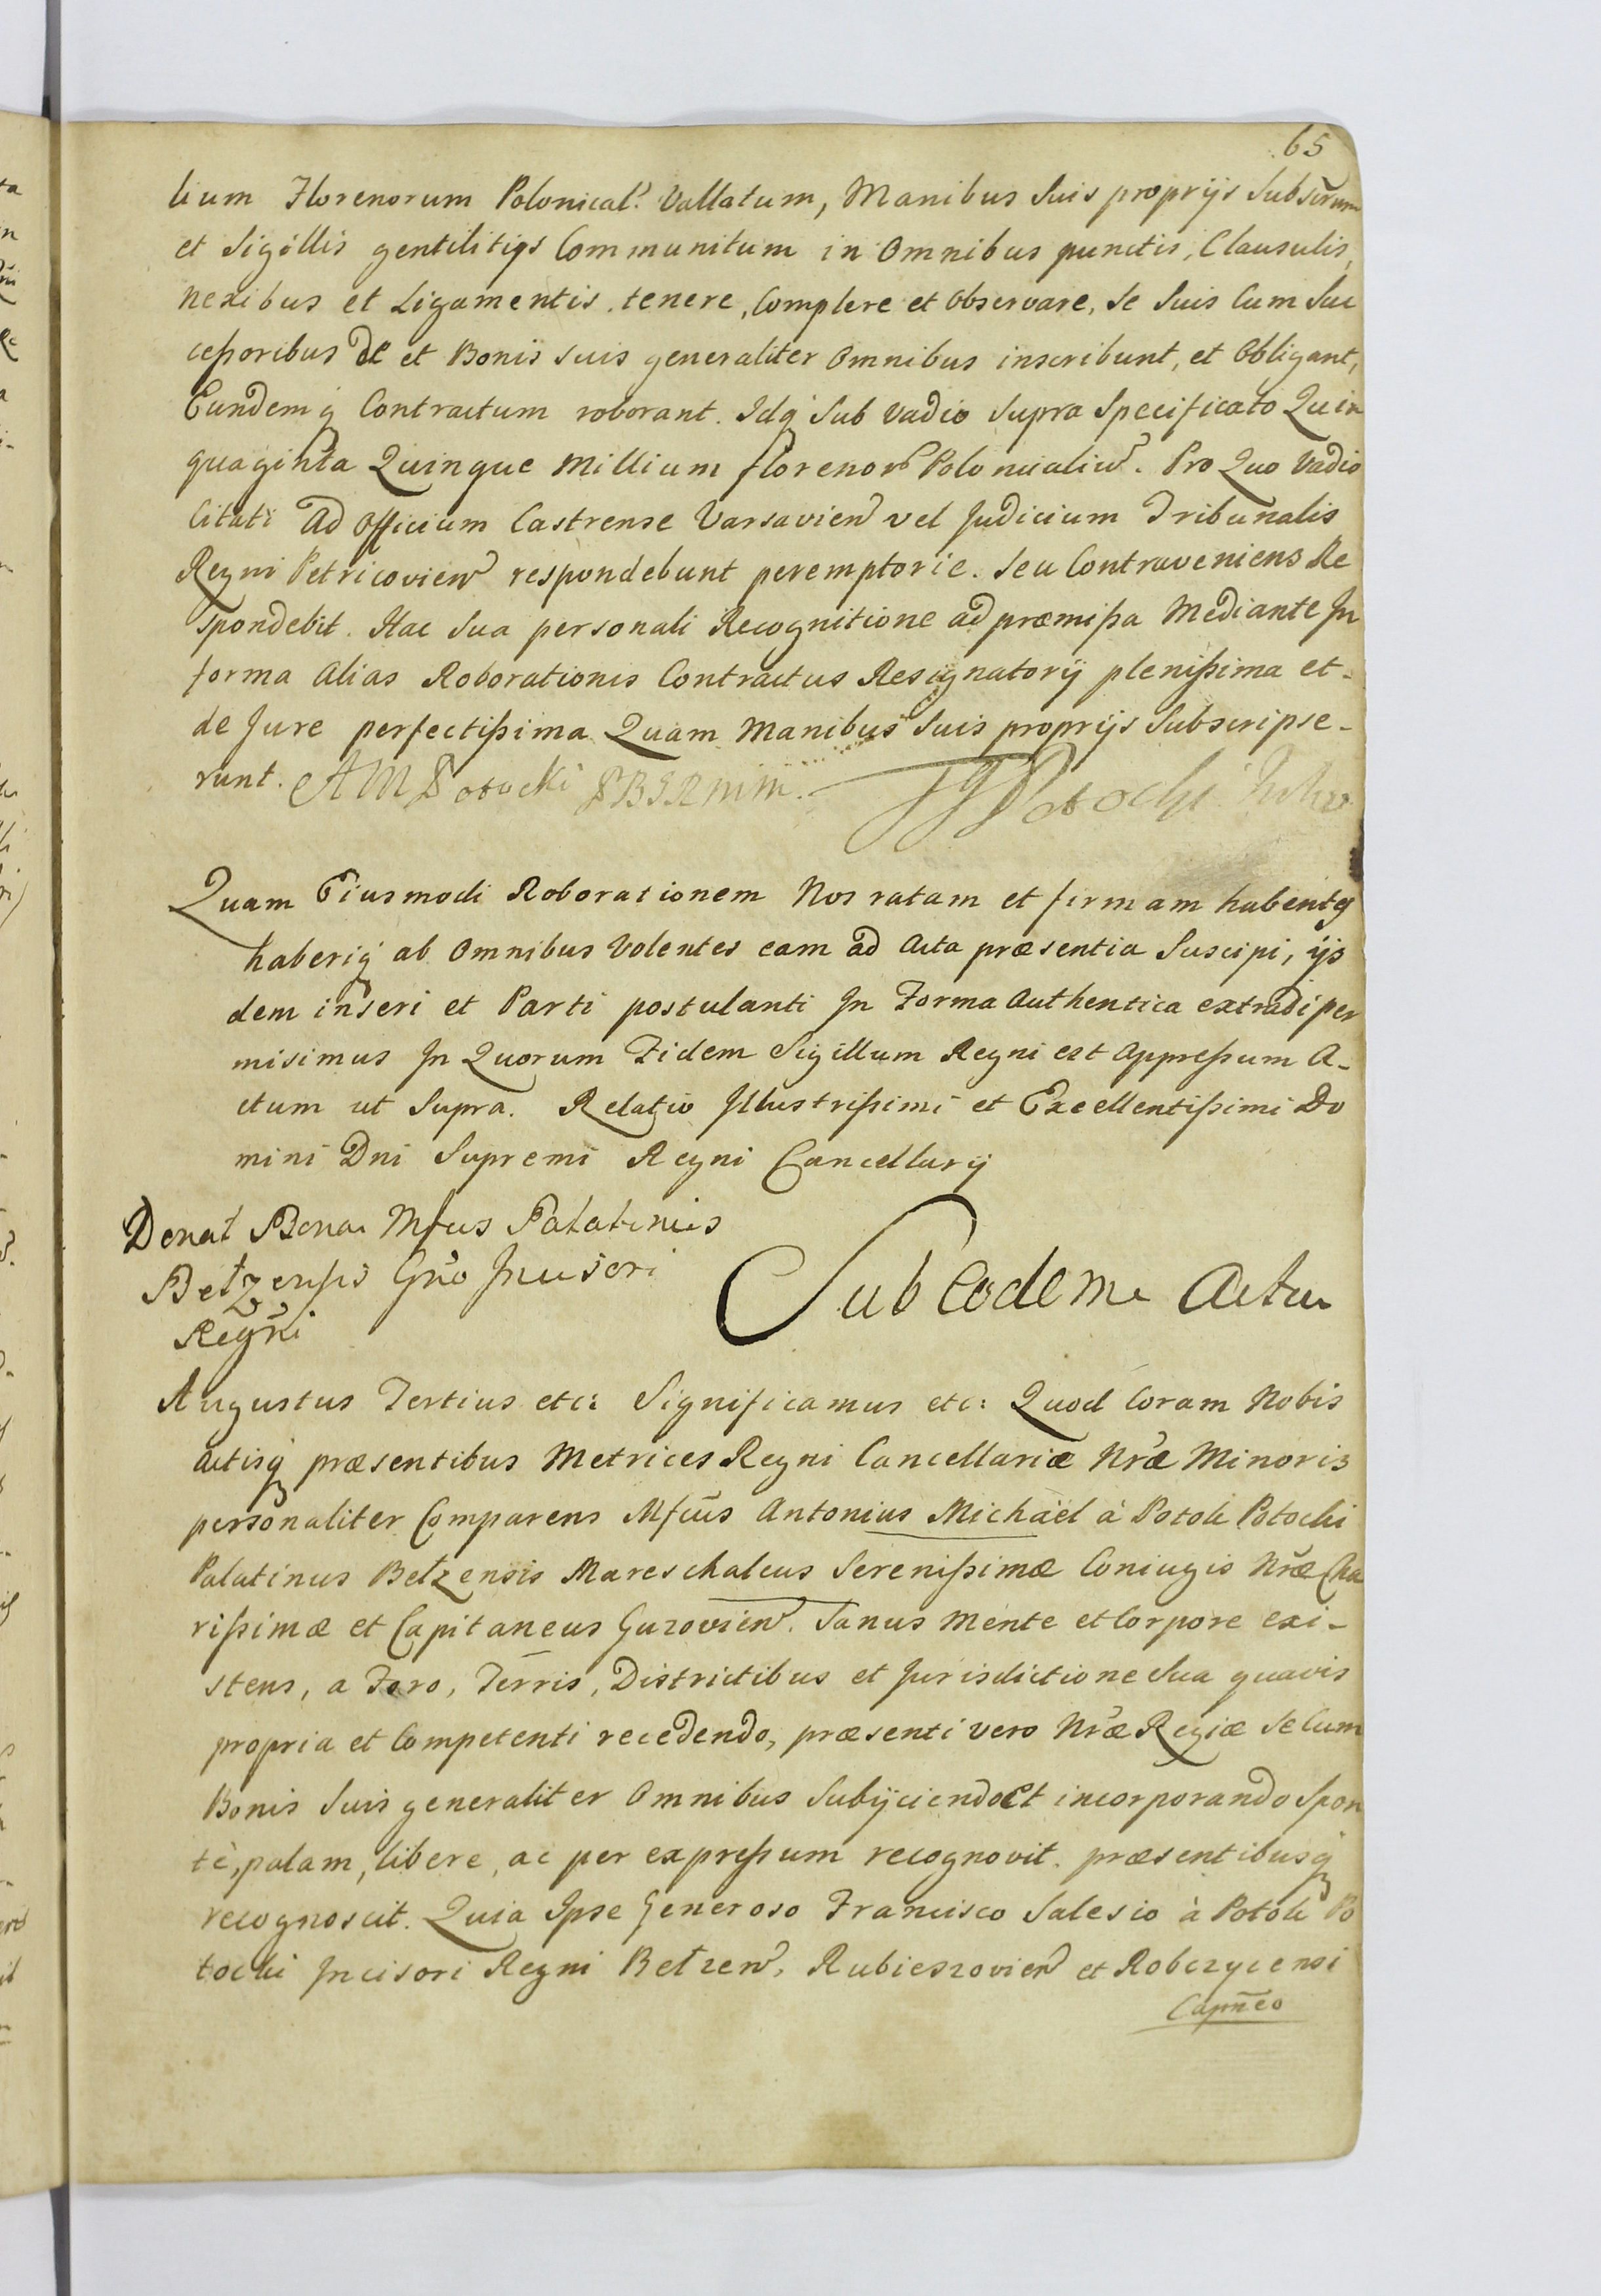 65
lium Florenorum Polonical: Vallatum, Manibus Suis proprijs Subscrum
et Sigillis gentilitijs Communitum in Omnibus punctis, Clausulis,
nexibus et Ligamentis. tenere, Complere et Observare, Se Suis Cum Suc
cessoribus de et Bonis suis generaliter Omnibus inscribunt, et Obligant,
Eundemq Contractum roborant. Idq Sub Vadio Supra Specificato Quin
quaginta Quinque Millium florenor Polonicaliu. Pro Quo Vadio
Citati Ad Officium Castrense Varsavien vel Judicium Tribunalis
Regni Petricovien respondebunt peremptorie. Seu Contraveniens Re
spondebit. Hac Sua personali Recognitione ad præmissa Mediante In
forma Alias Roborationis Contractus Resignatorij plenissima et-
de Jure perfectissima Quam Manibus Suis proprijs Subscripse-
runt. AM Potocki Potocki
Quam Eiusmodi Roborationem Nos ratam et firmam habentes
haberiq ab Omnibus Volentes eam ad Acta præsentia Suscipi, ijs
dem inseri et Parti postulanti In Forma Authentica extradi per
misimus In Quorum Fidem Sigillum Regni est Appressum A-
ctum ut Supra. Relatio Illustrissimi et Excellentissimi Do
mini Dni Supremi Regni Cancellarij
Donat Bona Mfcus Palatinus
Betzensis Gno Incisori
Regni
Sub Eodem Actu
Augustus Tertius etc: Significamus etc: Quod Coram Nobis
Actisq præsentibus Metrices Regni Cancellariæ Nræ Minoris
personaliter Comparens Mfcus Antonius Michaël à Potok Potocki
Palatinus Betzensis Mareschalcus Serenissimæ Coniugis Nræ Cha
rissimæ et Capitaneus Guzovien. Sanus Mente et Corpore exi-
stens, a Foro, Terris, Districtibus et Jurisdictione Sua quavis
propria et Competenti recedendo, præsenti vero Nræ Regiæ Se Cum
Bonis Suis generaliter Omnibus Subijciendo Et incorporando Spon
tè, palam, libere, ac per expressum recognovit. præsentibusq
recognoscit. Quia Ipse Generoso Francisco Salesio à Potok Po
tocki Incisori Regni Betzen, Rubieszovien et Robczycensi
Capñeo